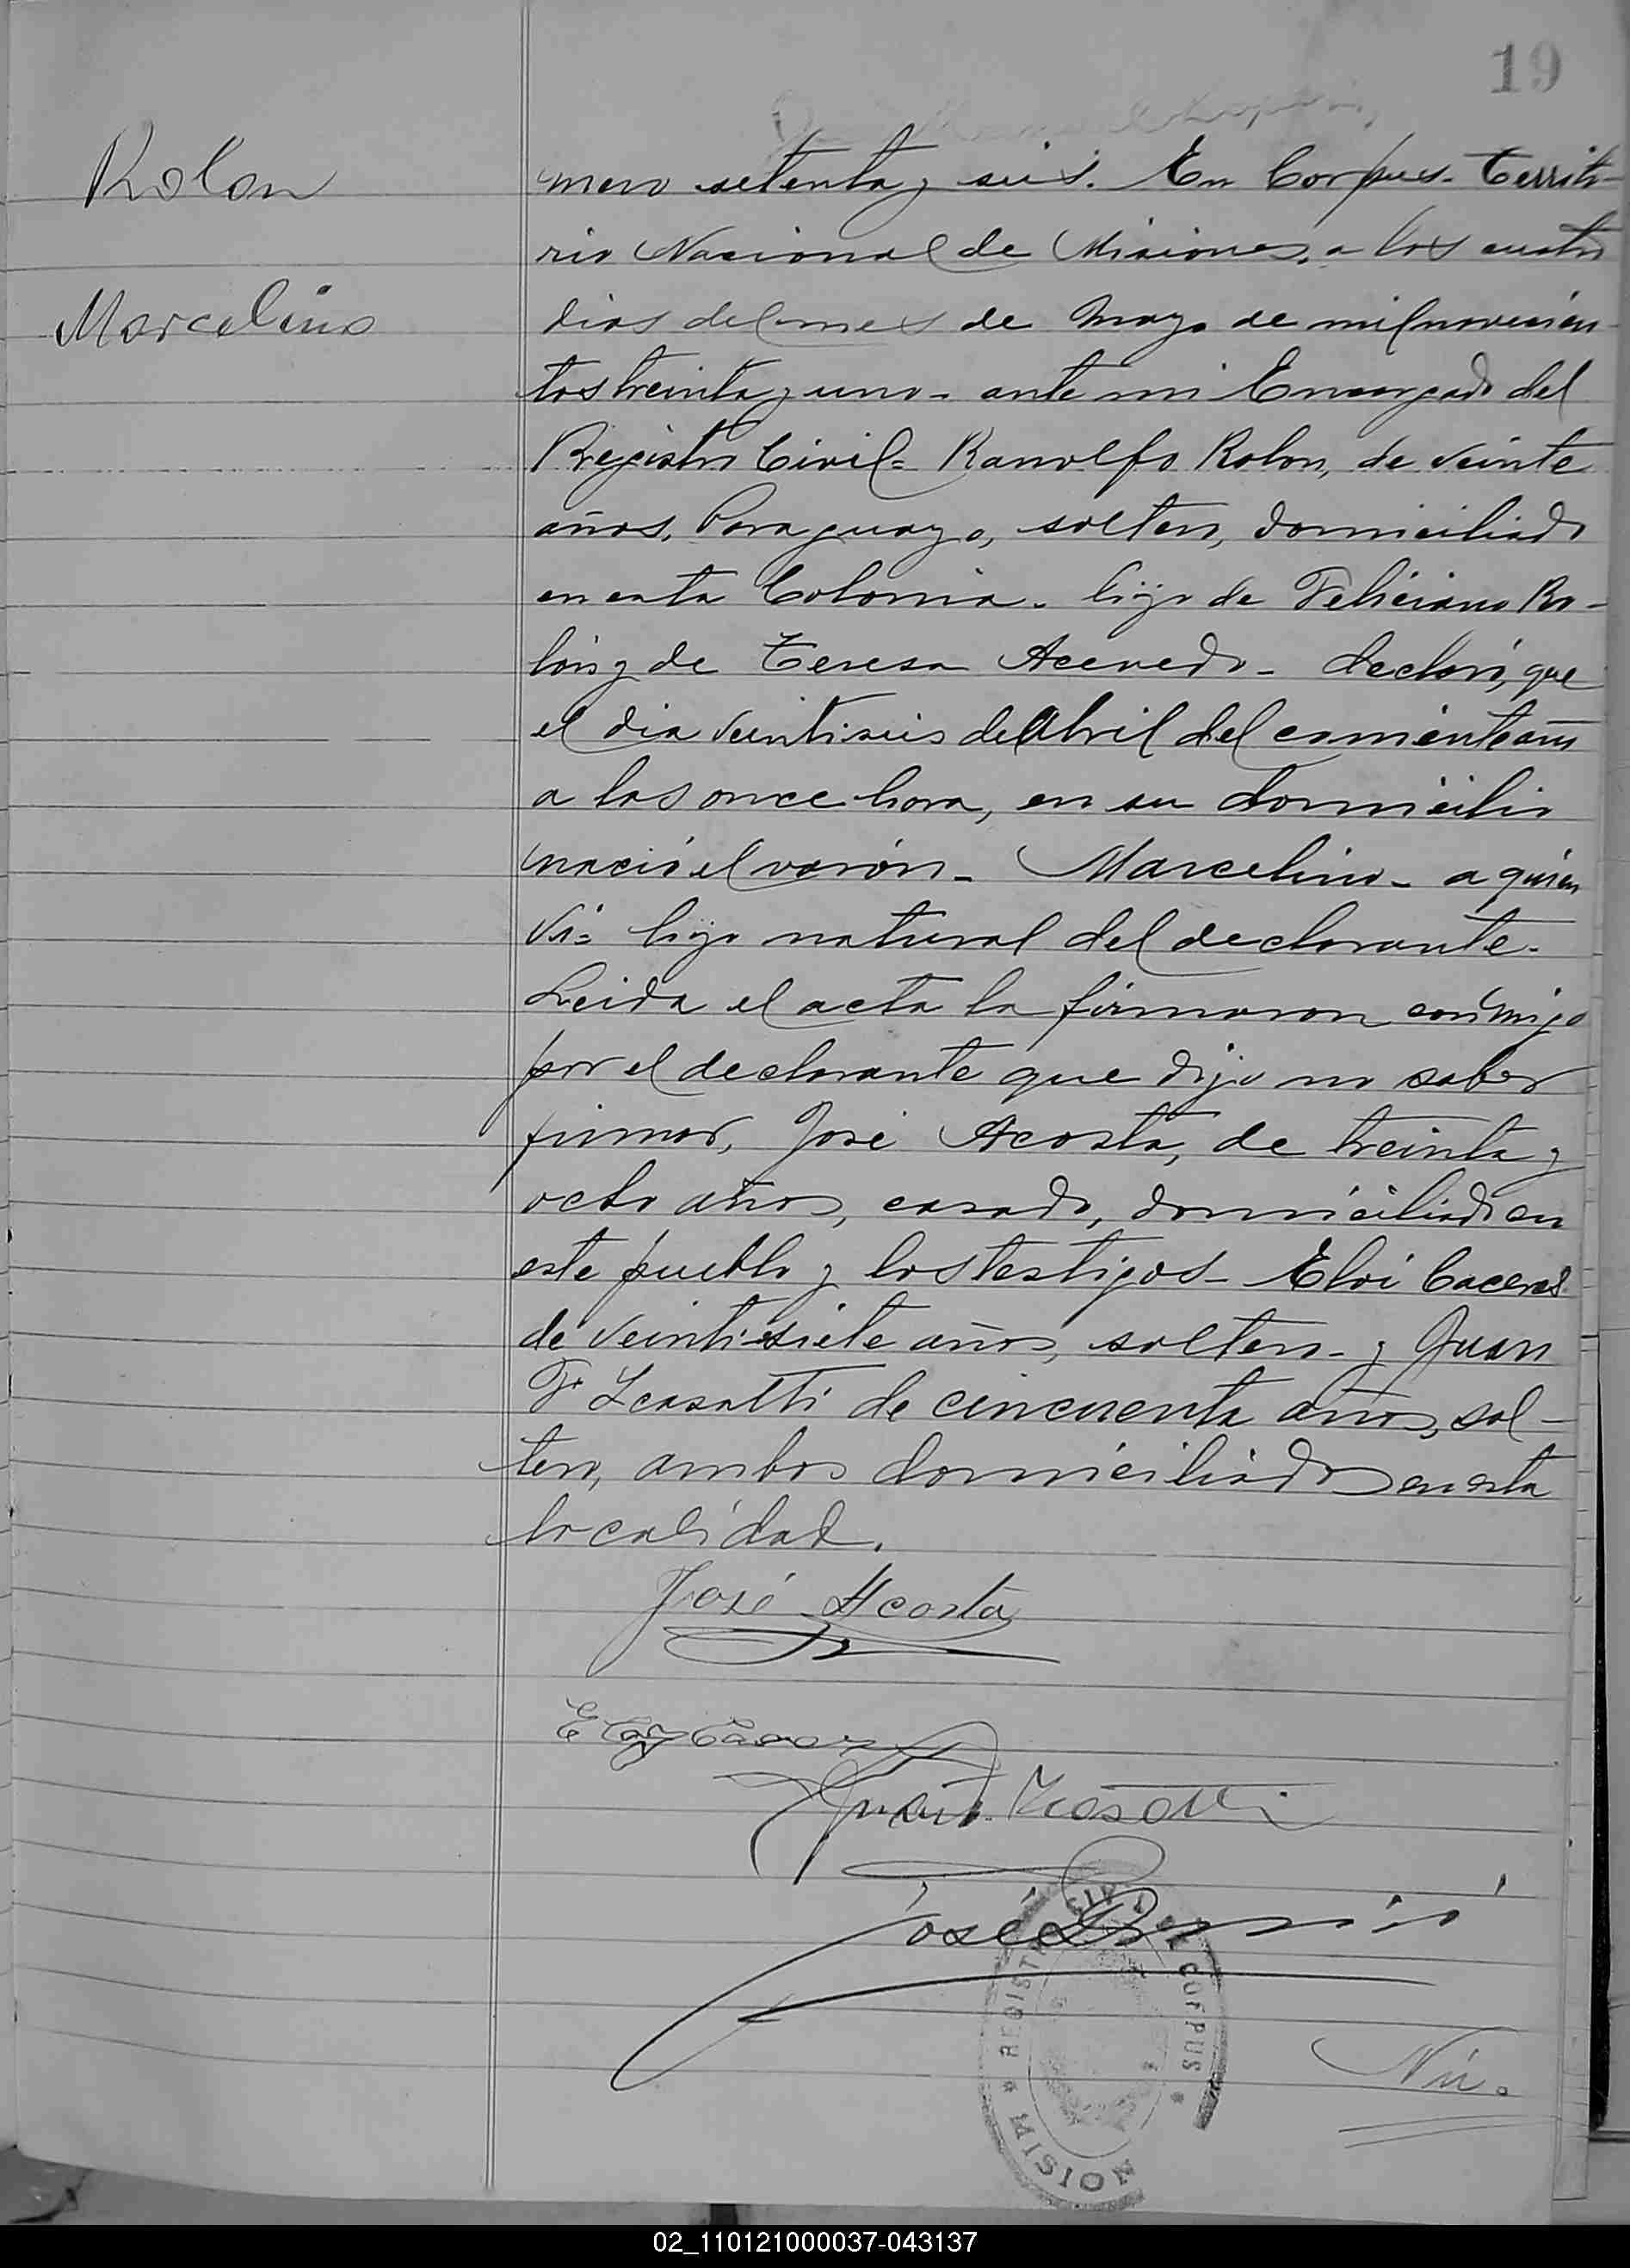 19
Rolon
Marcelino
mero setenta y seis. En Corpus. Territo-
rio Nacional de Misiones, a los cuatro
dias del mes de Mayo de mil novecien-
tos treinta y uno - ante mi Encargado del
Registro Civil = Ranolfo Rolon, de veinte
años, Paraguayo, soltero, domiciliado
en esta Colonia - hijo de Feliciano Ro-
lón y de Teresa Acevedo - declaró, que
el dia veintiseis de Abril del corriente año
a las once hora, en su domicilio
nació el varón - Marcelino - a quien
vi = hijo natural del declarante.
Leida el acta la firmaron conmigo
por el declarante que dijo no saber
firmar, José Acosta, de treinta y
ocho años, casado, domiciliado en
este pueblo y los testigos - Eloi Caceres
de veintisiete años, soltero - y Juan
F de cincuenta años, sol-
tero, ambos domiciliados en esta
localidad.
José Acosta
Eloy Caceres
Juan F.
José
REGISTRO CIVIL DE CORPUS * MISIONES *
Nú.
02_110121000037-043137